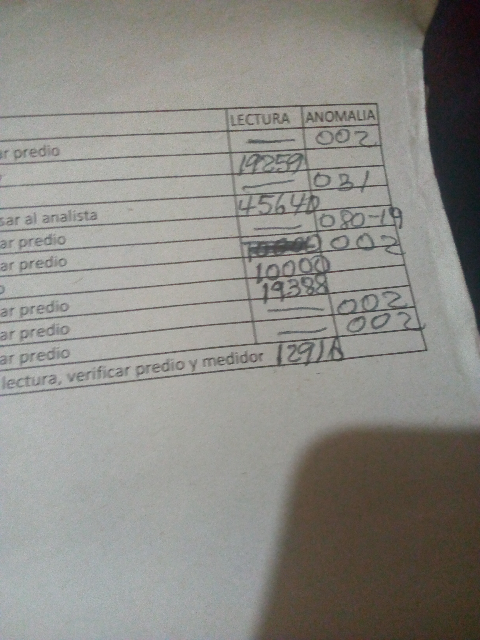 LECTURA ANOMALIA
ar predio — 002
19259
— 031
sar al analista 45640
ar predio — 080-19
ar predio 002
o 10000
19388
ar predio — 002
ar predio — 002
ar predio
lectura, verificar predio y medidor 1291A